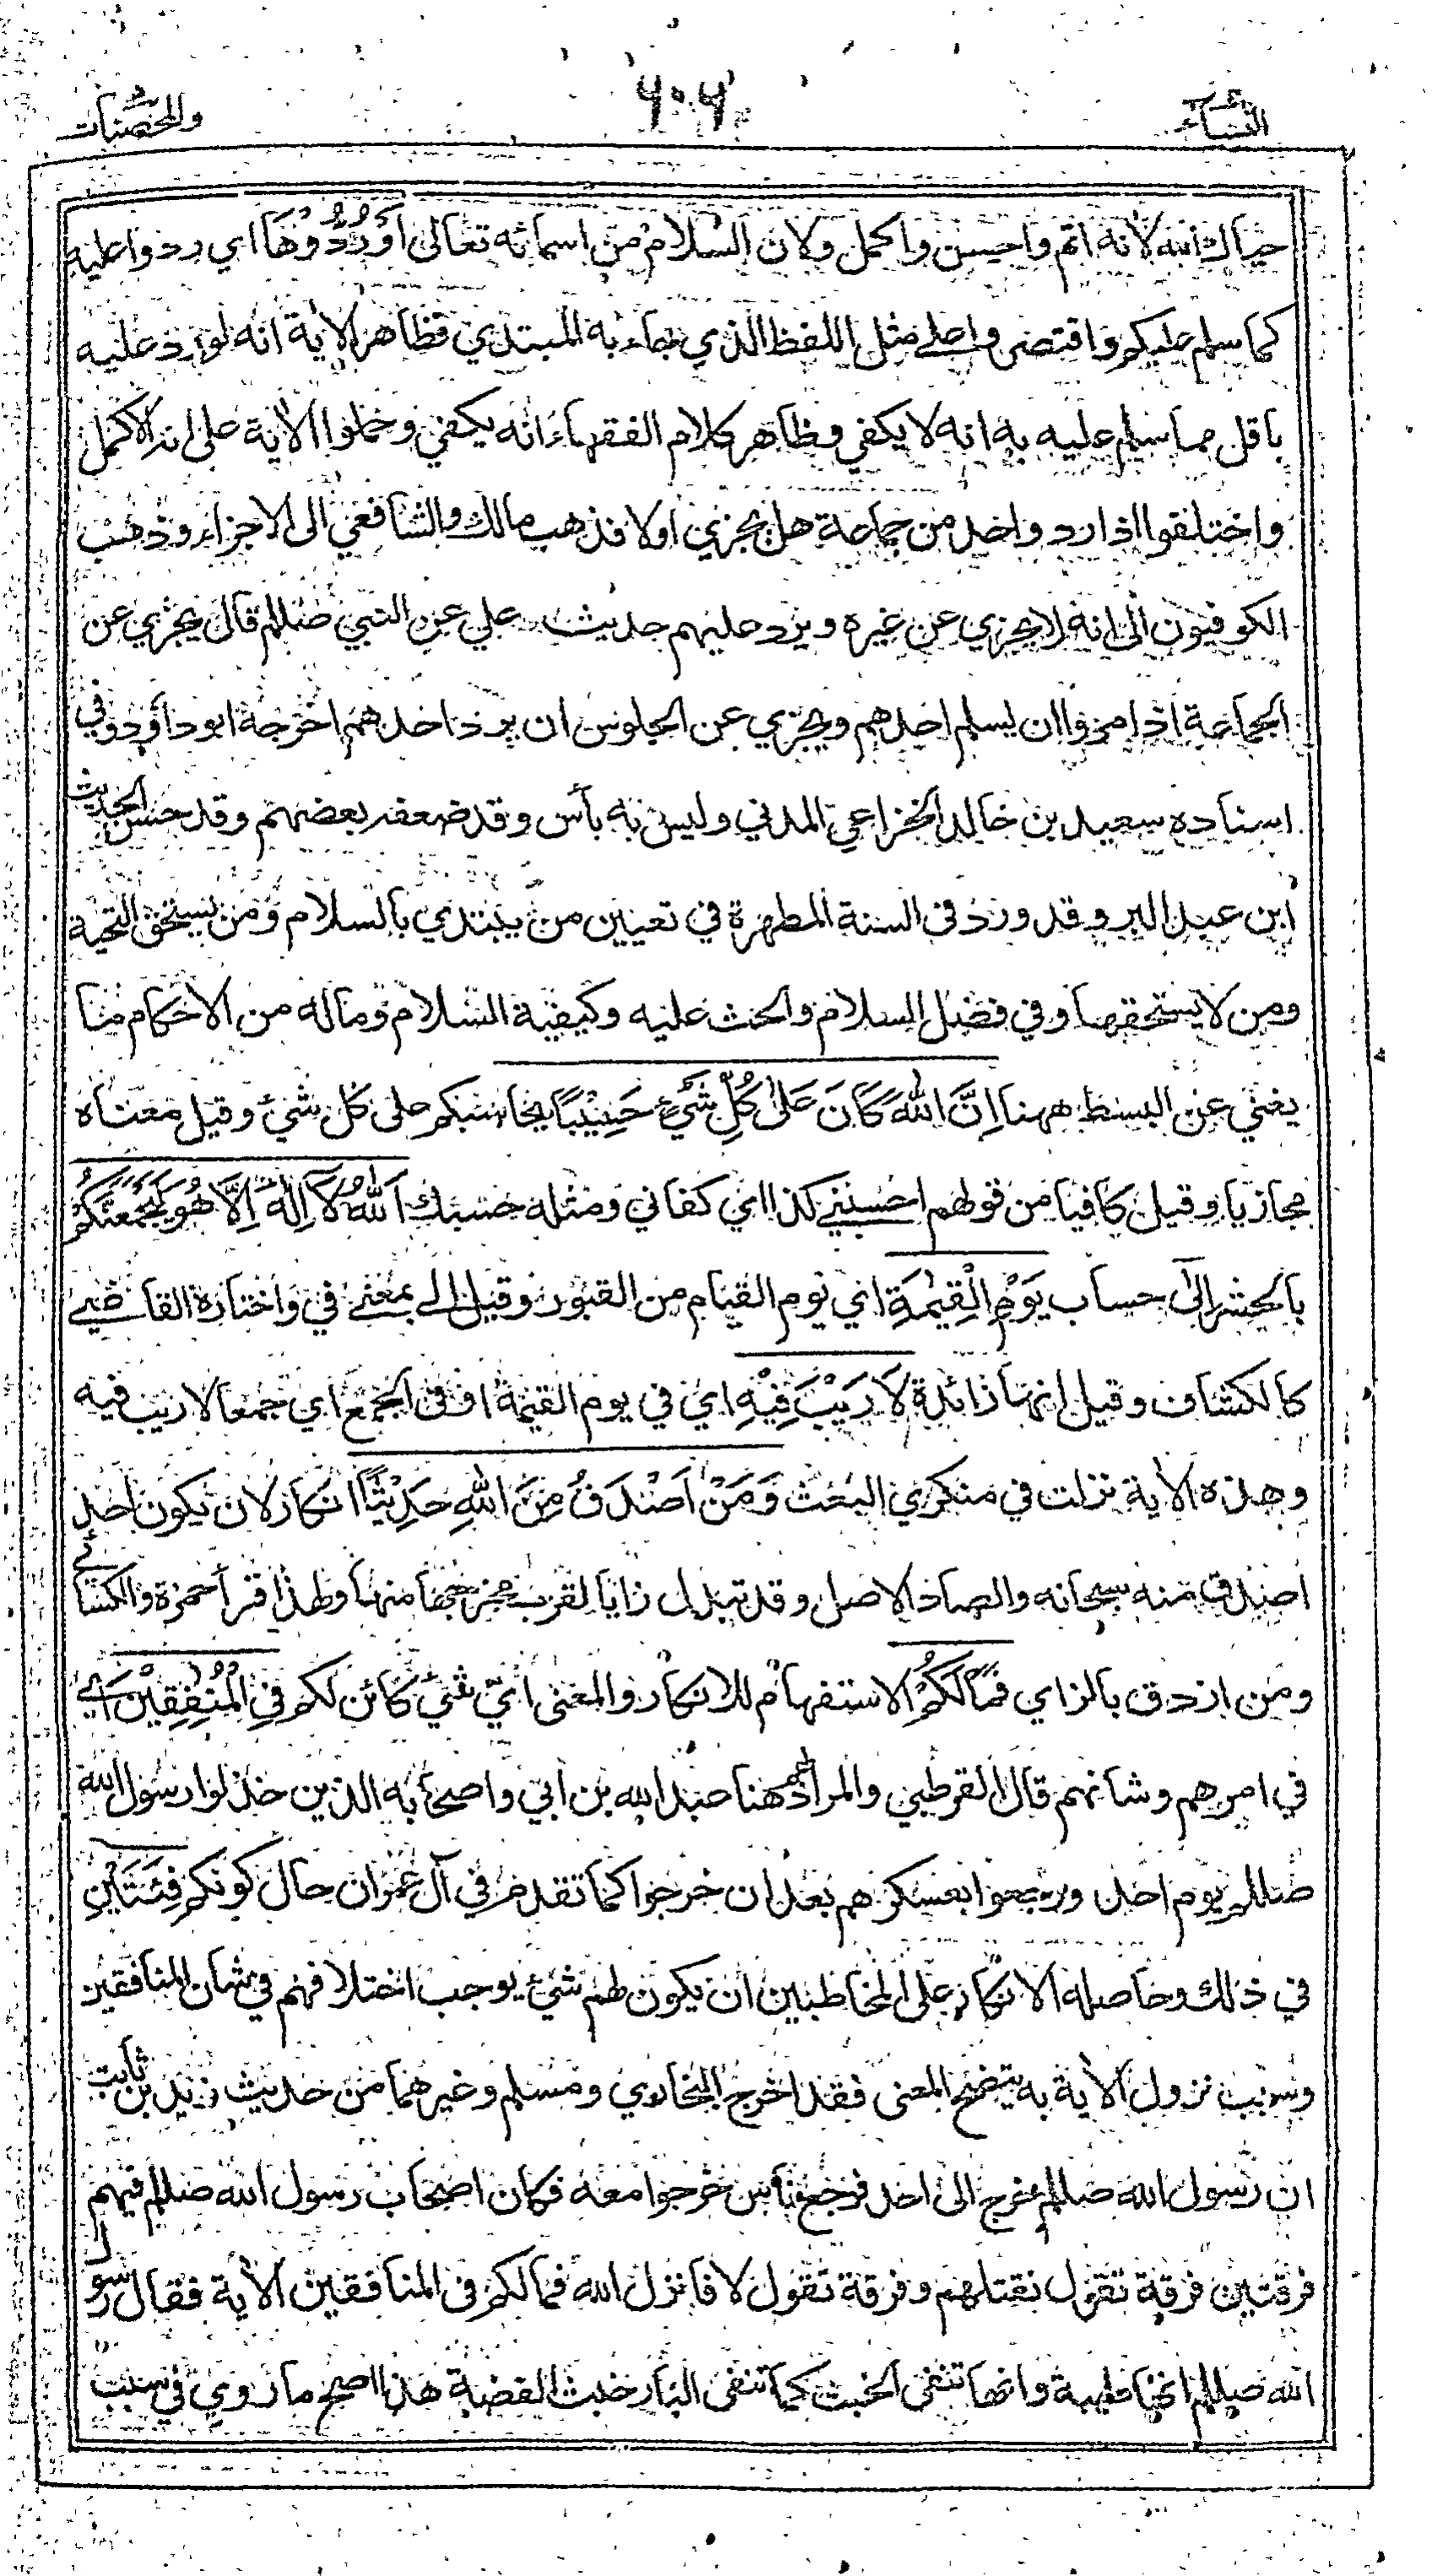 النساء
٦٠٦
والمحصنات
حياك الله لانه اتم واحسن واكمل ولان السلام من اسمائه تعالى اَوْ رُدُّوْهَا اي ردوا عليه
كما سلم عليكم واقتضى واصلے مثل اللفظ الذي جاء به المبتدي فظاهر الاٰية انه لو رد عليه
باقل مما سلم عليه به انه لا يكفي وظاهر كلام الفقهاء انه يكفي وحملوا الاٰية على انه الاكمل
واختلفوا اذا رد واحد من جماعة هل يجزي اولا فذهب مالك والشافعي الى الاجزاء وذهب
الكوفيون الى انه لا يجزي عن غيره ويرد عليهم حديث علي عن النبي صللم قال يجزي عن
الجماعة اذا مروا ان يسلم احدهم ويجزي عن الجلوس ان يرد احدهم اخرجه ابوداؤد وفي
اسناده سعيد بن خالد الخزاعي المدني وليس به بأس وقد ضعفه بعضهم وقد حسن الحديث
ابن عبد البر وقد ورد في السنة المطهرة في تعيين من يبتدي بالسلام ومن يستحق التحية
ومن لا يستحقها وفي فضل السلام والحث عليه وكيفية السلام وماله من الاحكام ما
يغني عن البسط ههنا اِنَّ اللهَ كَانَ عَلىٰ كُلِّ شَيْءٍ حَسِيْبًا يحاسبكم على كل شيء وقيل معناه
مجازيا وقيل كافيا من قولهم احسبنے كذا اي كفاني ومثله حسبك اَللهُ لَآ اِلٰهَ اِلَّا هُوَ لَيَجْمَعَنَّكُمْ
بالحشر اِلىٰ حساب يَوْمِ الْقِيٰمَةِ اي يوم القيام من القبور وقيل الے بمعنے في واختاره القاضے
كالكشاف وقيل انها زائدة لَا رَيْبَ فِيْهِ اي في يوم القيٰمة او في الجمع اي جمعا لا ريب فيه
وهذه الاٰية نزلت في منكري البعث وَمَنْ اَصْدَقُ مِنَ اللهِ حَدِيْثًا انكار لان يكون احد
اصدق منه سبحانه والصاد الاصل وقد تبدل زايا لقرب مخرجها منها ولهذا قرأ حمزة والكسائے
ومن ازدق بالزاي فَمَا لَكُمْ الاستفهام للانكار والمعنى اي شيء كائن لكم فِي الْمُنٰفِقِيْنَ اے
في امرهم وشانهم قال القرطبي والمراد بهم ههنا عبد الله بن ابي واصحابه الذين خذلوا رسول الله
صللم يوم احد ورجعوا بعسكرهم بعد ان خرجوا كما تقدم في اٰل عمران حال كونكم فِئَتَيْنِ
في ذلك وحاصله الانكار على المخاطبين ان يكون لهم شيء يوجب اختلافهم في شان المنافقين
وسبب نزول الاٰية به يتضح المعنى فقد اخرج البخاري ومسلم وغيرهما من حديث زيد بن ثابت
ان رسول الله صللم خرج الى احد فرجع ناس خرجوا معه فكان اصحاب رسول الله صللم فيهم
فرقتين فرقة تقول نقتلهم وفرقة تقول لا فانزل الله فمالكم في المنافقين الاٰية فقال رسول
الله صللم انها طيبة وانها تنفي الخبث كما تنفي النار خبث الفضة هذا اصح ما روي في سبب